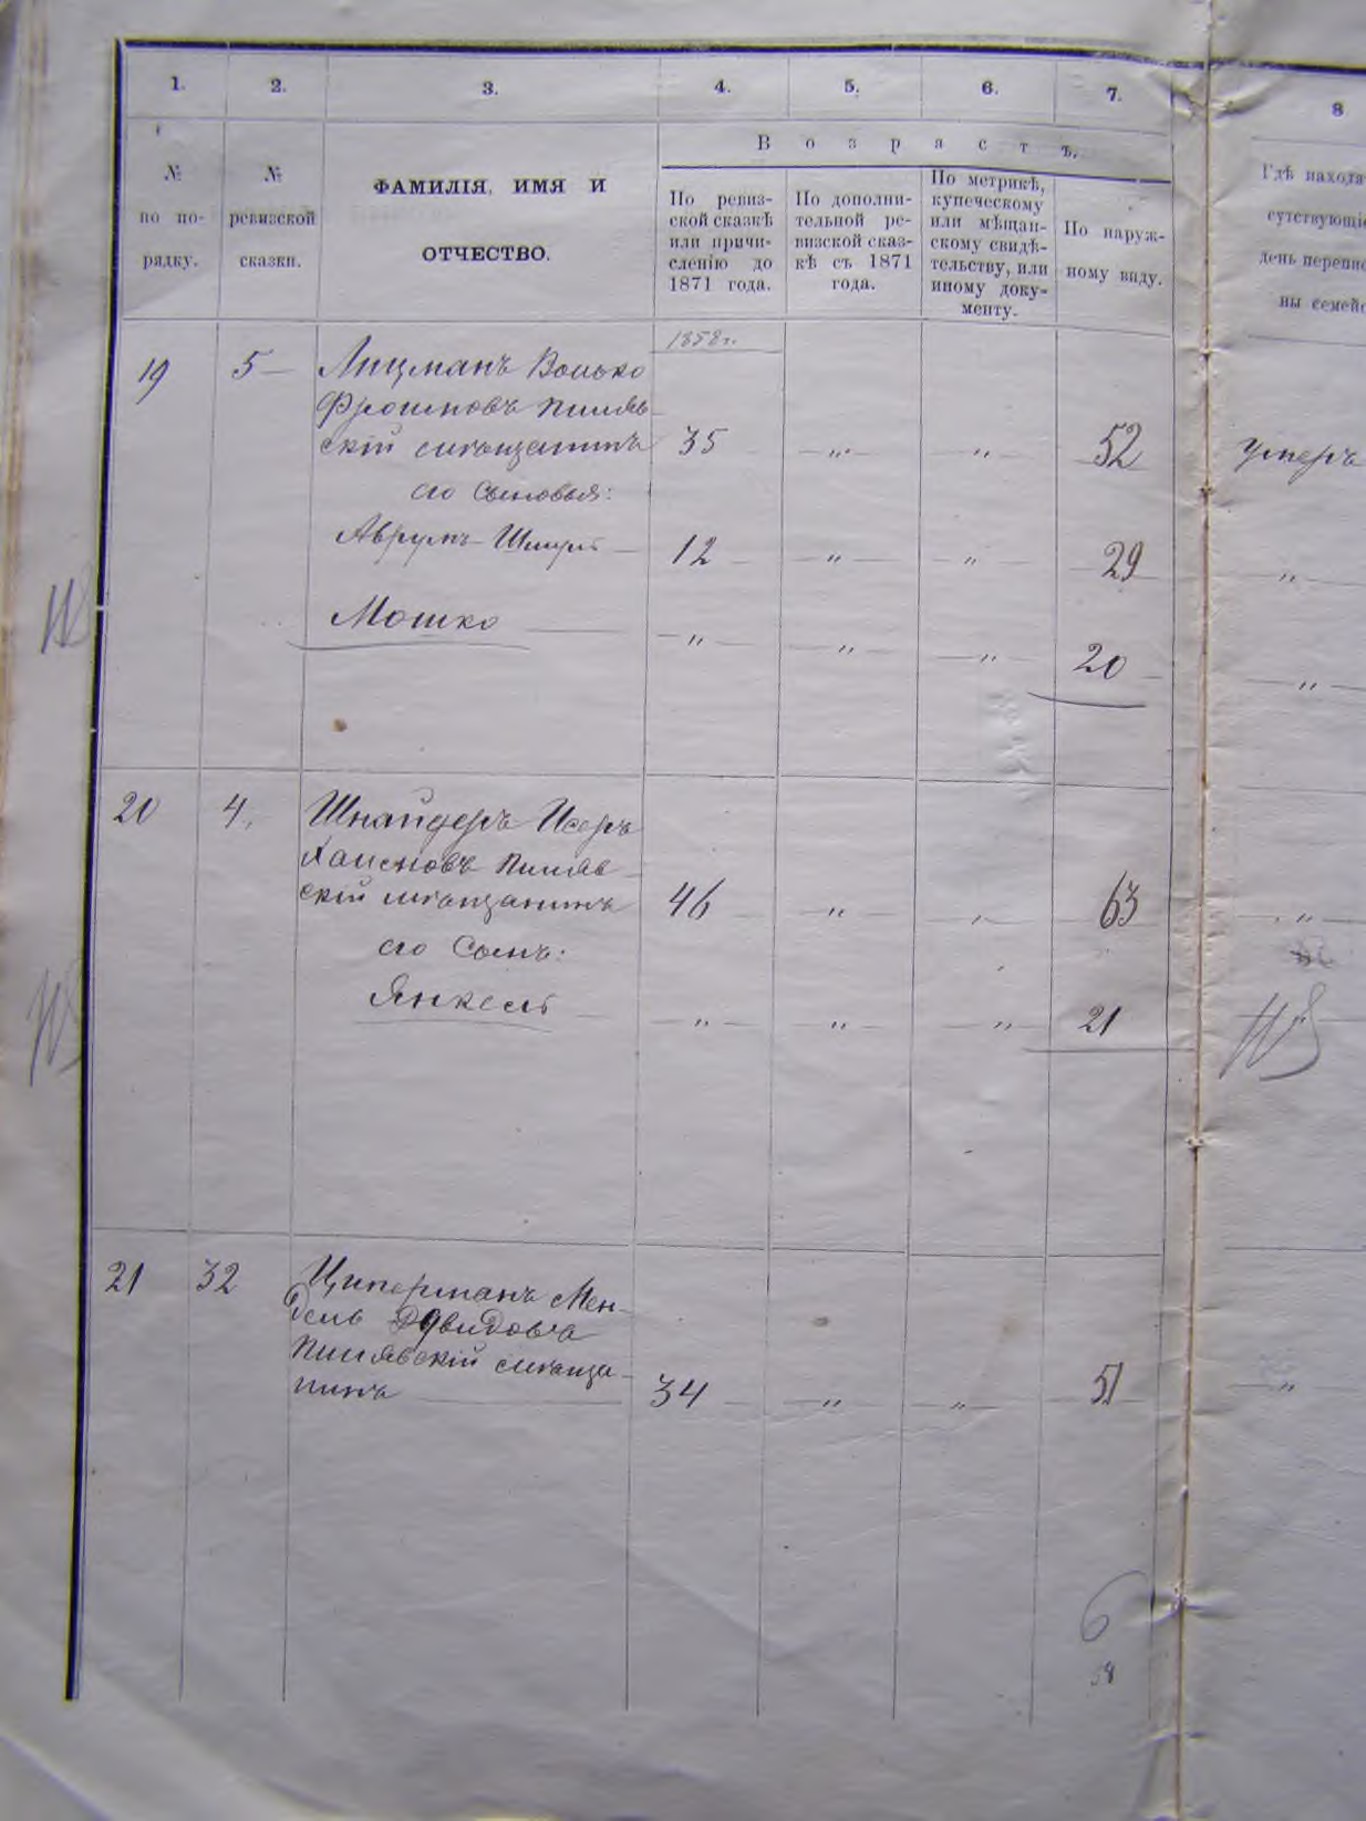 1. 2. 3. 4. 5. 6. 7. 8
№ по по-рядку.
№ ревизской сказки.
ФАМИЛІЯ, ИМЯ И
ОТЧЕСТВО.
Возрастъ.
По ревиз-
ской сказкѣ
или причи-
сленію до
1871 года.
По дополни-
тельной ре-
визской сказ-
кѣ съ 1871
года.
По метрикѣ,
купеческому
или мѣщан-
скому свидѣ-
тельству, или
иному доку-
менту.
По наруж-
ному виду.
Гдѣ находя
сутствующіе
день перепис
ны семейс
1858 г.
19 5 Лицманъ Волько
Фроимовъ Пиляв
скій мѣщанинъ 35 " " 52 умеръ
его сыновья:
Аврумъ 12 " " 29 "
Мошко " " " 20 "
20 4. Шнайдеръ Исеръ
Пиляв
скій мѣщанинъ 46 " " 63 "
его сынъ:
Янкель " " " 21
21 32 Циперманъ Мен-
дель Давидовъ
Пилявскій мѣща-
нинъ 34 " " 51 "
6